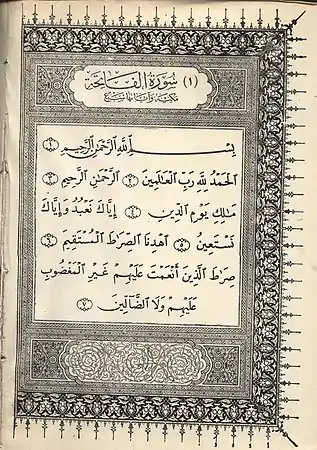 (١) سُورَةُ الفَاتِحَةِ
مكيّة وآياتها سبع
بِسْمِ ٱللَّهِ ٱلرَّحْمَٰنِ ٱلرَّحِيمِ ١
ٱلْحَمْدُ لِلَّهِ رَبِّ ٱلْعَٰلَمِينَ ٢ ٱلرَّحْمَٰنِ ٱلرَّحِيمِ ٣
مَٰلِكِ يَوْمِ ٱلدِّينِ ٤ إِيَّاكَ نَعْبُدُ وَإِيَّاكَ
نَسْتَعِينُ ٥ ٱهْدِنَا ٱلصِّرَٰطَ ٱلْمُسْتَقِيمَ ٦
صِرَٰطَ ٱلَّذِينَ أَنْعَمْتَ عَلَيْهِمْ غَيْرِ ٱلْمَغْضُوبِ
عَلَيْهِمْ وَلَا ٱلضَّآلِّينَ ٧